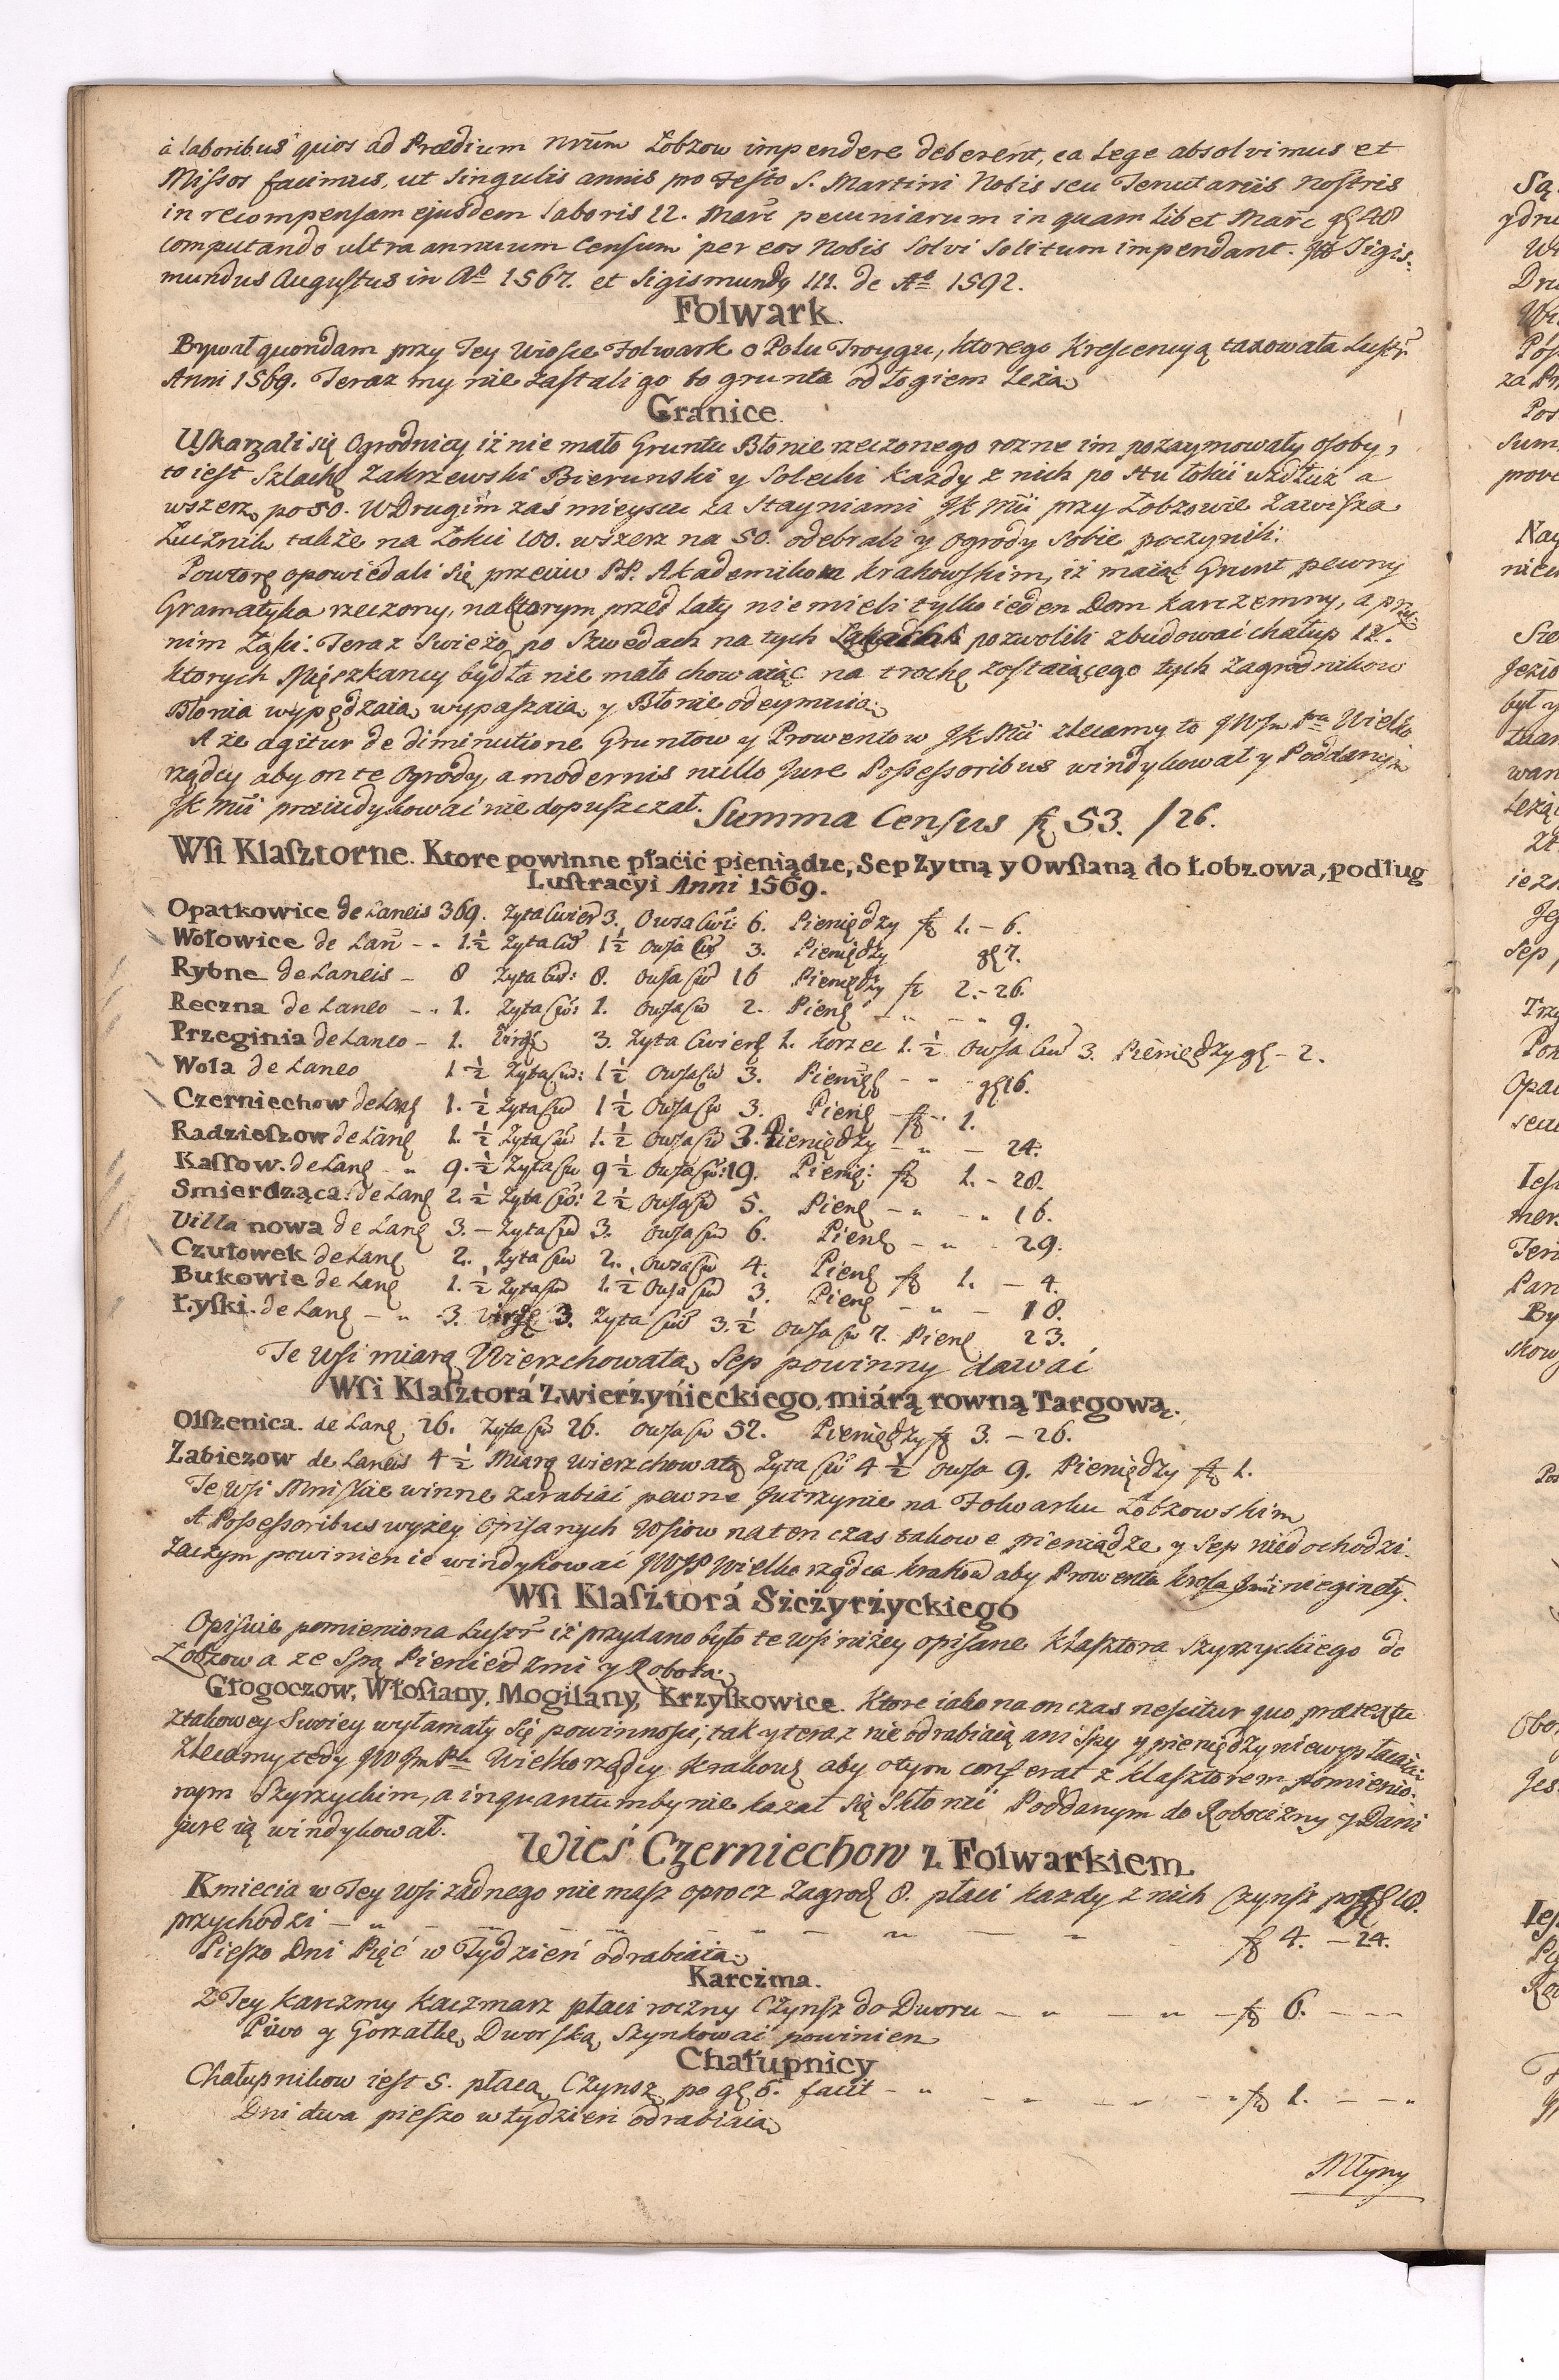 à laboribus quos ad Prædium nrūm Łobzow impendere deberent, ea Lege absolvimus et
Missos facimus, ut singulis annis pro Festo S. Martini Nobis seu Tenutariis nostris
in recompensam ejusdem laboris 12. Marc pecuniarum in quam libet Marc gł 48
computando ultra annuum Censum per eos Nobis Solvi Solitum impendant. Sigis:
mundus Augustus in Aº 1567. et Sigismundg III. de Aº 1592.
Folwark.
Bywał quondam przy Tey Wiosce Folwark o Polu Troygu, ktorego Krescencyą taxowała Lustr
Anni 1569. Teraz my nie zastali go bo grunta odłogiem Leżą
Granice.
Uskarzali się Ogrodnicy iż nie mało Gruntu Błonie rzeczonego rozne im pozaymowały osoby,
to iest Szlache Zakrzewski Bierunski y Solecki Każdy z nich po stu łokci wzdłuż a
wszerz po 50. W Drugim zaś mieyscu za Stayniami JK Mci przy Łobzowie Zawisza
Łuznik także na Łokci 100. wszerz na 50. odebrali y Ogrody sobie poczynili.
Powtorę opowiedali się przeciw PP. Akademikom Krakowskim, iż maiąc Grunt pewny
Gramatyka rzeczony, na ktorym przed laty nie mieli tylko ieden Dom karczemny, a przy
nim Łąki: Teraz swieżo po Szwedach na tych Łąkach pozwolili zbudować chałup 12.
ktorych Mięszkancy bydła nie mało chowaiąc na trochę zostaiącego tych zagrodnikow
Błonia wypędzaią wypaszaią y Błonie odeymuią.
A że agitur de diminutione Gruntow y Prowentow JK Mci zlecamy to JWJm Pna Wielko
rządcy aby on te Ogrody, a modernis nullo Jure Possessoribus windykował y Poddanym
JK Mci praiudykować nie dopuszczał. Summa Census fł 53. /26.
Wsi Klasztorne. Ktore powinne płacić pieniądze, Sep Zytną y Owsianą do Łobzowa, podług
Lustracyi Anni 1569.
Opatkowice de Laneis 369. Zyta Cwierc 3. Owsa Cwi: 6. Pieniędzy fł 1. - 6.
Wołowice de Lan - - 1. ½ Zyta Cw 1 ½ Owsa Cw 3. Pieniędzy gł 7.
Rybne de Laneis - 8 Zyta Cw: 8. Owsa Cw 16 Pieniędzy fł 2. - 26.
Reczna de Laneo - - 1. Zyta Cw: 1. Owsa Cw 2. Pienę - " - " 9.
Przeginia de Laneo - 1. Virgę 3. Zyta Cwierę 1. Korzec 1. ½ Owsa Cw 3. Pieniędzy gł - 2.
Wola de Laneo 1 ½ Zyta Cw: 1 ½ Owsa Cw 3. Pienięę - - gł 16.
Czerniechow de Lanę 1. ½ Zyta Cw 1 ½ Owsa Cw 3. Pienę fł 1.
Radzieszow de Lanę 1. ½ Zyta Cw 1. ½ Owsa Cw 3. Pieniędzy - " - 24.
Kassow. de Lanę - " 9. ½ Zyta Cw 9 ½ Owsa Cw: 19. Pienię: fł 1. - 28.
Smierdząca: de Lanę 2. ½ Zyta Cw: 2 ½ Owsa Cw 5. Pienę - " - " 16.
Villa nowa de Lanę 3. - Zyta Cw 3. Owsa Cw 6. Pienę - " - 29.
Czułowek de Lanę 2. Zyta Cw 2. Owsa Cw 4. Pienę fł 1. - 4.
Bukowie de Lanę 1. ½ Zyta Cw 1. ½ Owsa Cw 3. Pienę - " - 18.
Łyski. de Lanę - " - 3. Virgę 3. Zyta Cw 3. ½ Owsa Cw 7. Pienę 23.
Te Wsi miarą Wierzchowatą Sep powinny dawać
Wsi Klasztorá Zwierżyńieckiego, miárą rowną Targową.
Olszenica. de Lanę 26. Zyta Cw 26. Owsa Cw 52. Pieniędzy fł 3. - 26.
Zabiezow de Laneis 4 ½ Miarą wierzchowatą Zyta Cw 4 ½ Owsa 9. Pieniędzy fł 1.
Te Wsi Mniskie winne zarabiać pewne Jutrzynie na Folwarku Łobzowskim
A Possessoribus wyżey opisanych Wsiow na ten czas takowe pieniądze y Sep niedochodzi.
Zaczym powinien ie windykować JWJP Wielko rządca Krakow aby Prowenta Krola Jmci nieginęły.
Wsi Klasztorá Szczyrżyckiego
Opisuie pomieniona Lustr iż przydano było te Wsi niżey opisane Klasztora Szyrzyckiego do
Łobzowa ze Spą Pieniedzmi y Robotą.
Głogoczow, Włosiany, Mogilany, Krzyszkowice. Ktore iako na on czas nescitur quo prætextu
z takowey Swoiey wyłamały się powinnosci, tak y teraz nie odrabiaią ani Spy y pieniędzy niewypłacaią
Zlecamy tedy JWJm Pnu Wielkorządcy Krakowę aby otym conferat z Klasztorem pomienio:
nym Szyrzyckim, a inquantumby nie kazał się Skłonić Poddanym do Robocizny y Dani
jure ią windykował.
Wieś Czerniechow z Folwarkiem.
Kmiecia w Tey Wsi żadnego nie masz oprocz Zagrod 8. płaci każdy z nich Czynsz po gł 18.
przychodzi - " - - - - - - - fł 4. - 24.
Pieszo Dni Pięć w Tydzień odrabiaią.
Karcżma.
Z Tey Karczmy Kaczmarz płaci roczny Czynsz do Dworu - " - " - fł 6. - -
Piwo y Gorzałkę Dworską Szynkować powinien
Chałupnicy
Chałupnikow iest 5. płacą Czynsz po gł 6. facit - " - - - - fł 1. - - "
Dni dwa pieszo w tydzień odrabiaią
Młyny